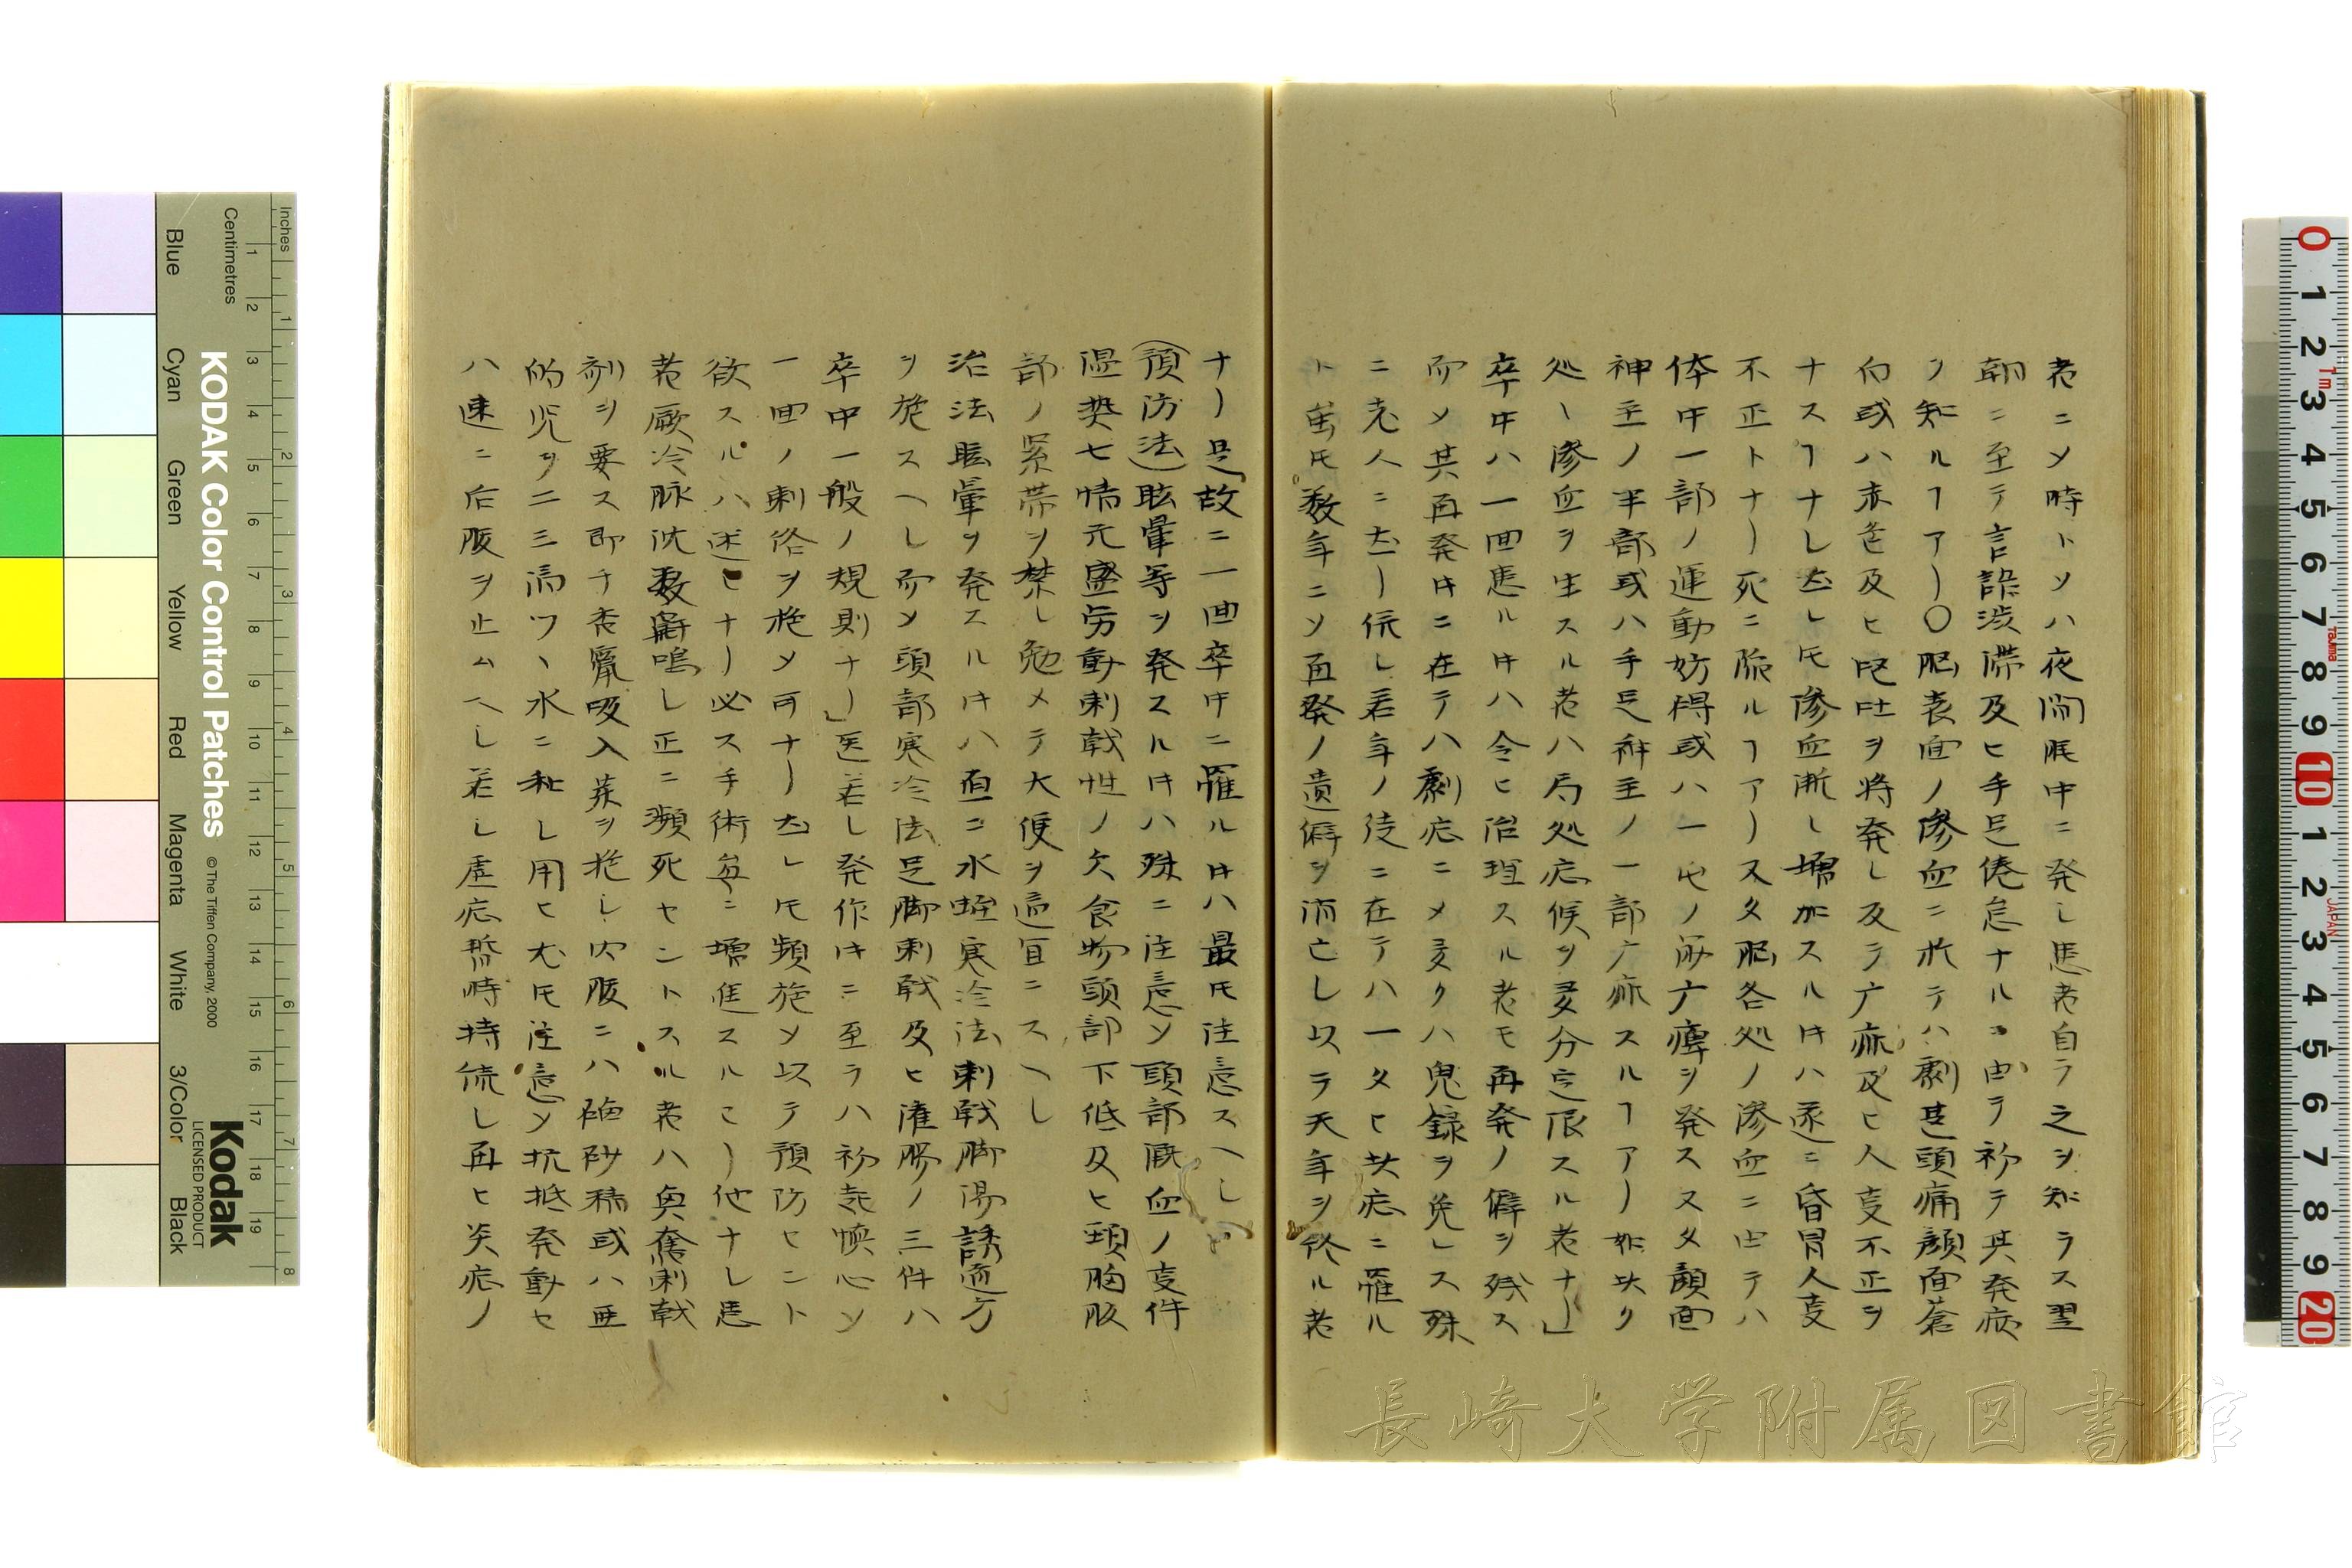 者ニソ時トソハ夜間眠中ニ発し患者自ラ之ヲ知ラス翌
朝ニ至テ言語渋滞及ヒ手足倦怠ナルヨ由テ初テ其発病
ヲ知ルヿアリ〇脳表面ノ滲血ニ於テハ劇甚頭痛顔面蒼
白或ハ赤色及ヒ嘔吐ヲ将発し及テ广痲及ヒ人事不正ヲ
ナスヿナし㐧レ𪜈滲血漸し増加スル㕝ハ遂ニ昏冒人事
不正トナリ死ニ陥ルヿアリ又タ脳各処ノ滲血ニ由テハ
体中一部ノ運動妨碍或ハ一ノ广痺ヲ発ス又タ顔面
神主ノ半部或ハ手足神主ノ一部广痲スルヿアリ如此ク
処〻滲血ヲ生スル者ハ局処症候ヲ区分定限スル者ナリ」
卒中ハ一回患ル㕝ハ令ヒ治理スル者モ再発ノ癖ヲ残ス
而ソ其再発㕝ニ在テハ劇症ニソ多クハ鬼録ヲ免レス殊
ニ老人ニ在し若年ノ徒ニ在テハ一タヒ此症ニ罹ル
ト雖𪜈数年ニソ再発ノ遺癖ヲ消亡し以テ天年ヲ終ル者
ナリ是」故ニ一回卒中ニ罹ル㕝ハ最𪜈注意スヘし
(預防法)眩暈等ヲ発スル㕝ハ殊ニ注意ソ頭部灌血ノ事件
温熱七情亢盛労動刺戟性ノ欠食物頭部下低及ヒ頸胸腹
部ノ緊帯ヲ禁し勉メテ大便ヲ適宜ニスヘし
治法眩暈ヲ発スル㕝ハ直ニ水蛭寒冷法刺戟脚湯誘導方
ヲ施スヘし而ソ頭部寒冷法足脚刺戟及ヒ灌腸ノ三件ハ
卒中一般ノ規則ナリ」医若し発作㕝ニ至テハ初起慎心ソ
一回ノ刺絡ヲ施ソ可ナリ㐧レ𪜈頻施ソ以テ預防セント
欲スルハ迷ヒナリ必ス手術毎ニ増進スルヿリ他ナし患
者厥冷脉沈数鼾鳴し正ニ瀕死セントスル者ハ興奮刺戟
剤ヲ要ス即チ麝嚊吸入茶ヲ施し内服ニハ硇砂精或ハ亜
的児ヲ二三滴ツヽ水ニ和し用ヒ尤𪜈注意ソ抗抵発動セ
ハ速ニ后服ヲ止ムヘし若し虚症暫時持続し再ヒ炎症ノ
長崎大学附属図書館
KODAK Color Control Patches
© The Tiffen Company, 2000
Kodak
LICENSED PRODUCT
Inches
Centimetres
Blue
Cyan
Green
Yellow
Red
Magenta
White
3/Color
Black